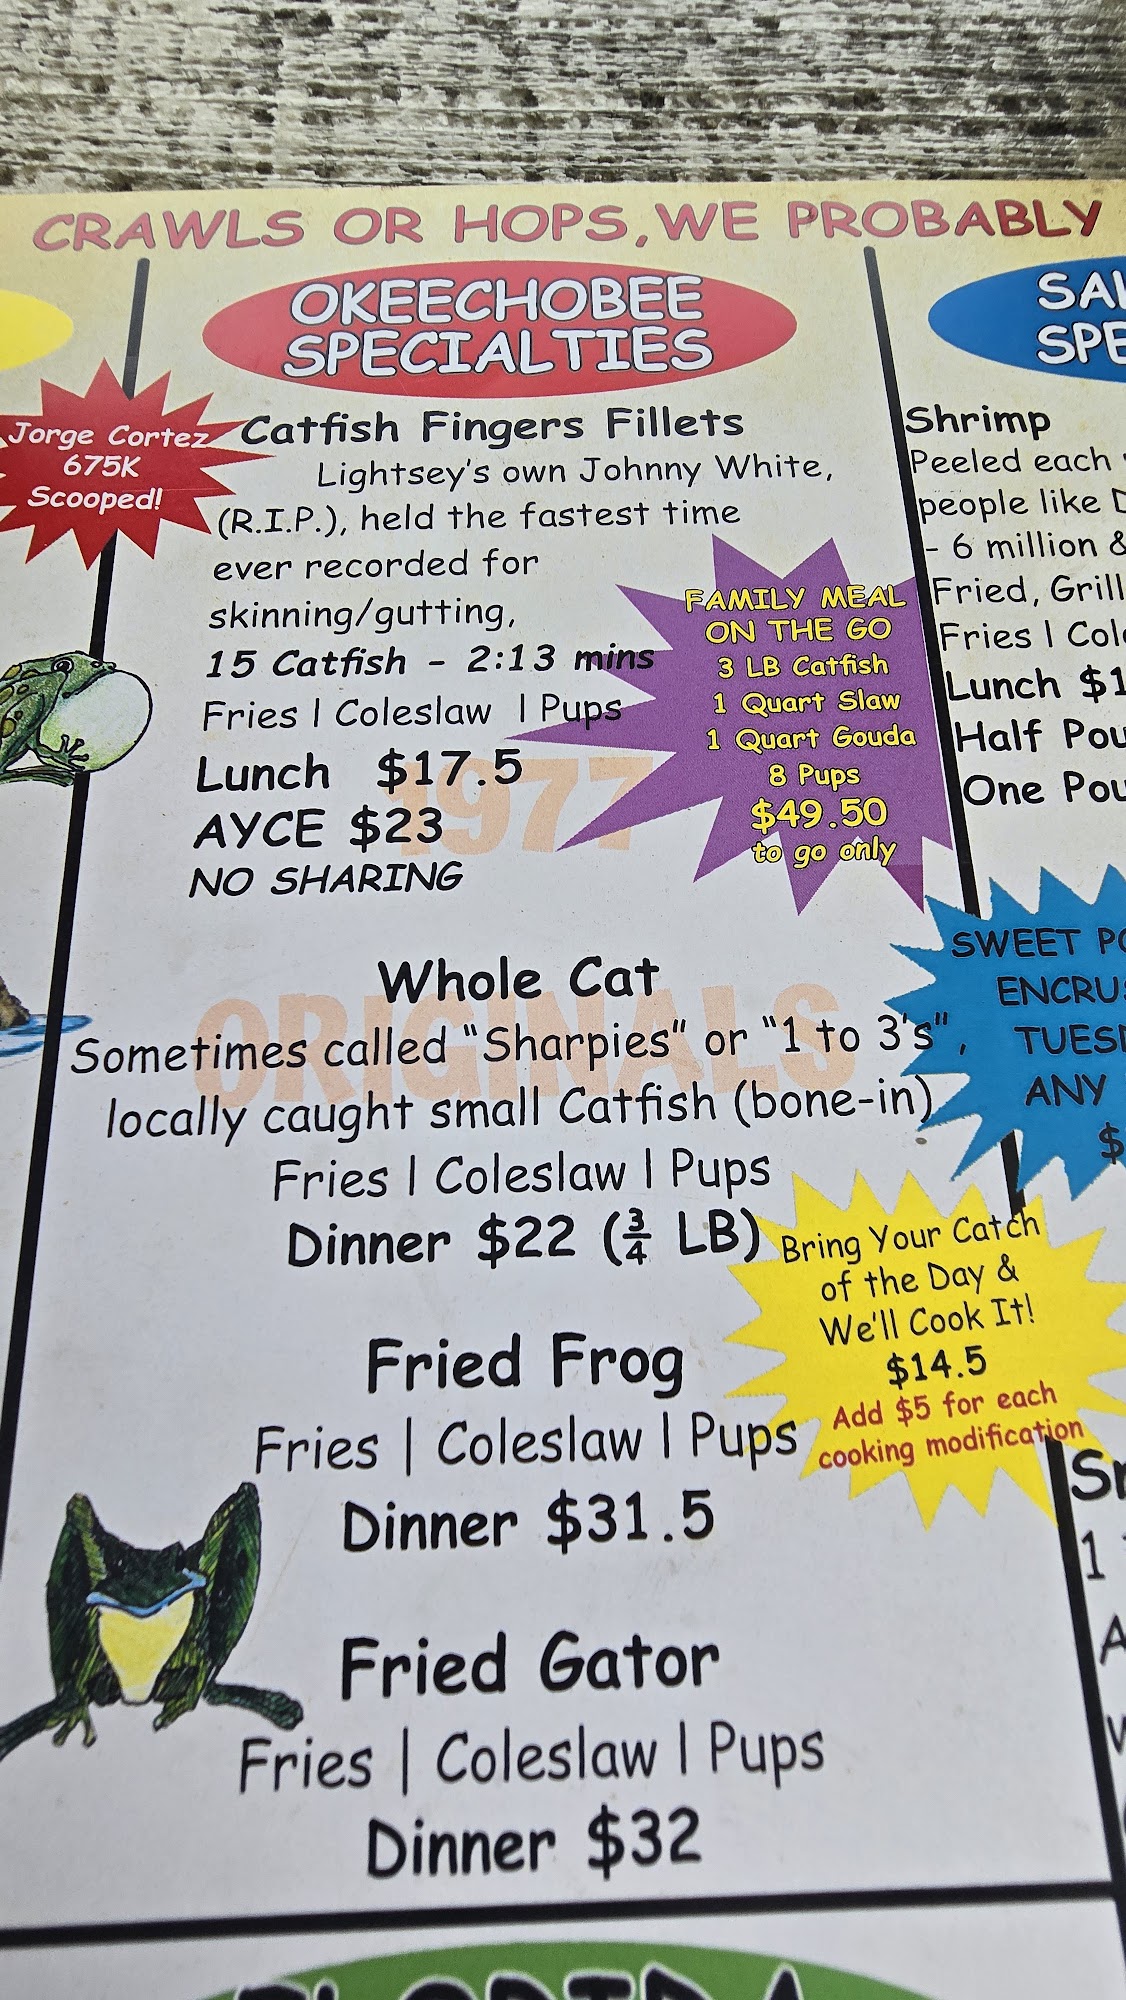 CRAWLS OR HOPS, WE PROBABLY
OKEECHOBEE
SPECIALTIES
Jorge Cortez
675K
Scooped!
Catfish Fingers Fillets
Lightsey's own Johnny White,
(R.I.P.), held the fastest time
ever recorded for
skinning/gutting,
15 Catfish - 2:13 mins
Fries | Coleslaw | Pups
Lunch $17.5
AYCE $23
NO SHARING
1977
ORIGINALS
FAMILY MEAL
ON THE GO
3 LB Catfish
1 Quart Slaw
1 Quart Gouda
8 Pups
$49.50
to go only
Whole Cat
Sometimes called "Sharpies" or "1 to 3's",
locally caught small Catfish (bone-in)
Fries | Coleslaw | Pups
Dinner $22 (¾ LB)
Bring Your Catch
of the Day &
We'll Cook It!
$14.5
Add $5 for each
cooking modification
Fried Frog
Fries | Coleslaw | Pups
Dinner $31.5
Fried Gator
Fries | Coleslaw | Pups
Dinner $32
Shrimp
Peeled each
people like
- 6 million &
Fried,
Fries |
Lunch $1
Half
One
SWEET
ANY
$
1